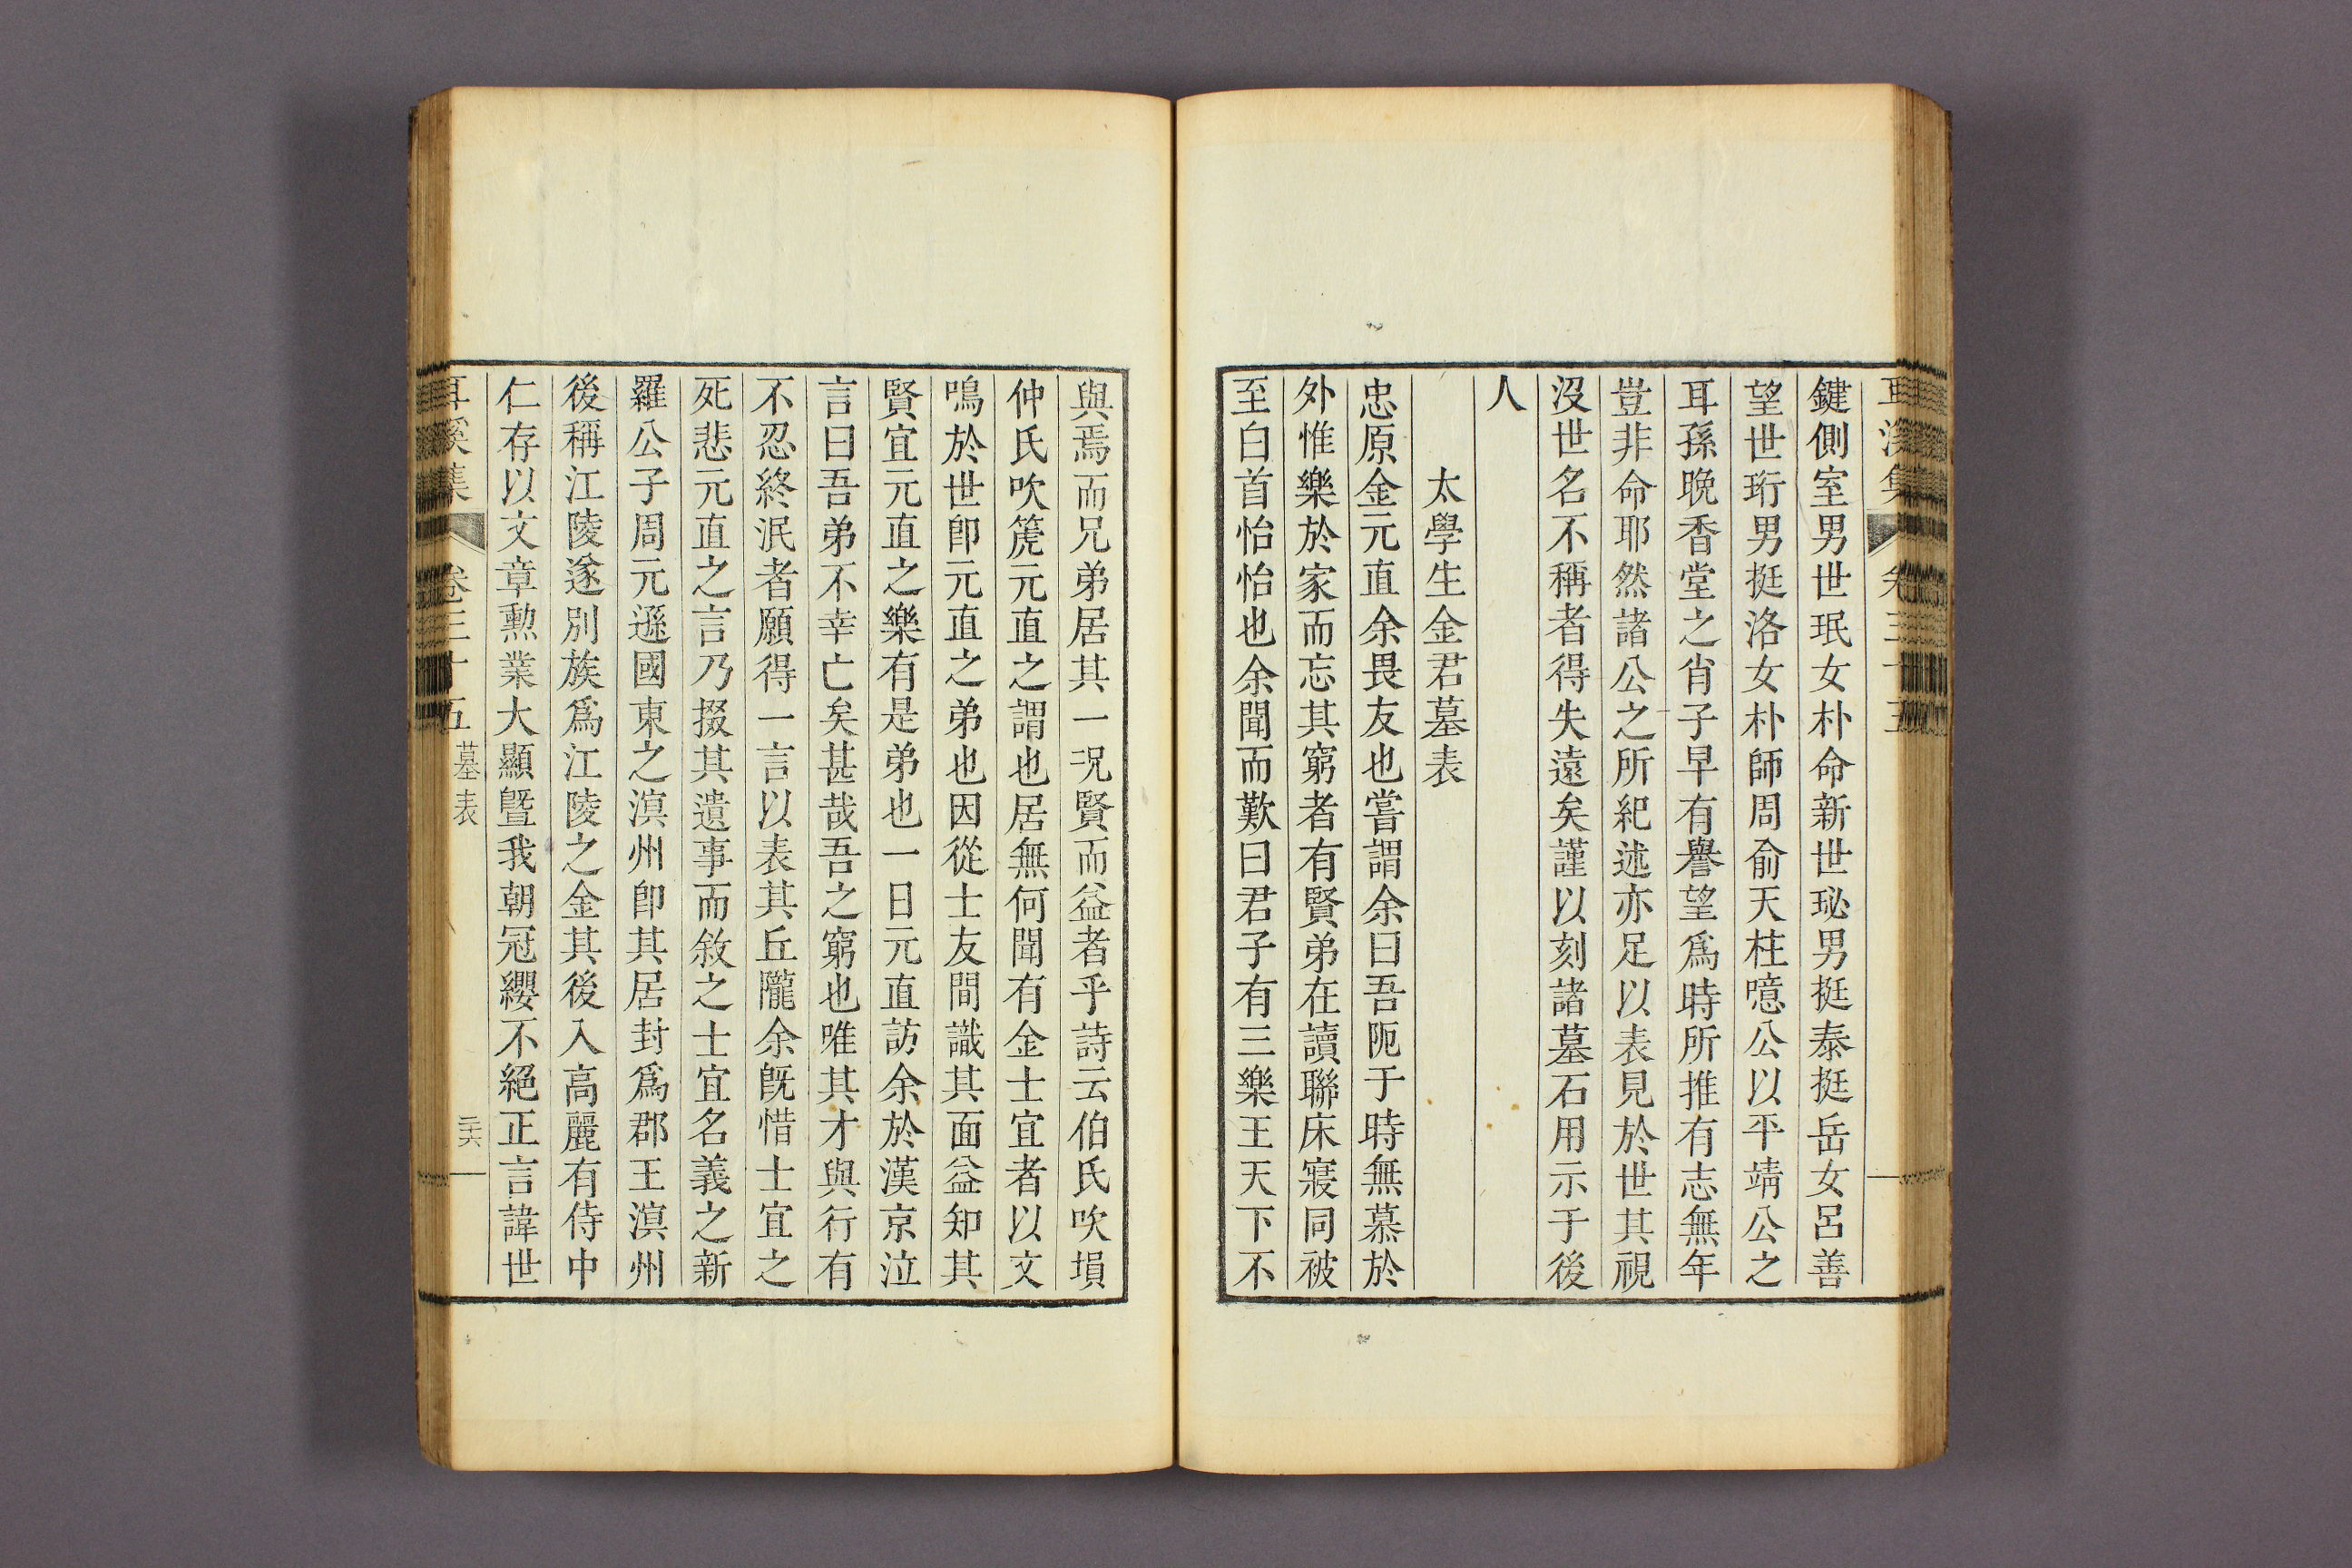 耳溪集 卷三十五
鍵側室男世珉女朴命新世珌男挺泰挺岳女呂善
望世珩男挺洛女朴師周俞天柱噫公以平靖公之
耳孫晩香堂之肖子早有譽望爲時所推有志無年
豈非命耶然諸公之所紀述亦足以表見於世其視
沒世名不稱者得失遠矣謹以刻諸墓石用示于後
人
太學生金君墓表
忠原金元直余畏友也嘗謂余曰吾阨于時無慕於
外惟樂於家而忘其窮者有賢弟在讀聯床寢同被
至白首怡怡也余聞而歎曰君子有三樂王天下不
與焉而兄弟居其一况賢而益者乎詩云伯氏吹塤
仲氏吹篪元直之謂也居無何聞有金士宜者以文
鳴於世卽元直之弟也因從士友間識其面益知其
賢宜元直之樂有是弟也一日元直訪余於漢京泣
言曰吾弟不幸亡矣甚哉吾之窮也唯其才與行有
不忍終泯者願得一言以表其丘隴余旣惜士宜之
死悲元直之言乃掇其遺事而敘之士宜名義之新
羅公子周元遜國東之溟州卽其居封爲郡王溟州
後稱江陵遂別族爲江陵之金其後入高麗有侍中
仁存以文章勲業大顯曁我朝冠纓不絕正言諱世
耳溪集 卷三十五 墓表 二十六